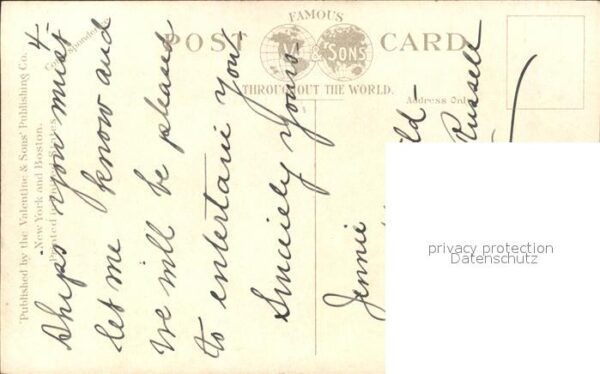 FAMOUS
POST CARD
V & SONS
THROUGHOUT THE WORLD.
Correspondence.
Address Only
Published by the Valentine & Sons' Publishing Co.
New York and Boston.
Printed in United States
4-
Ships you must
let me know and
we will be pleased
to entertain you.
Sincerely yours
Jennie
ld-
Russell
privacy protection
Datenschutz